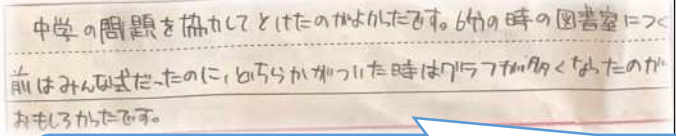 中学の問題を協力してとけたのがよかったです。6分の時の図書室につく
前はみんな式だったのに、どちらかがついた時はグラフが多くなったのが
おもしろかったです。